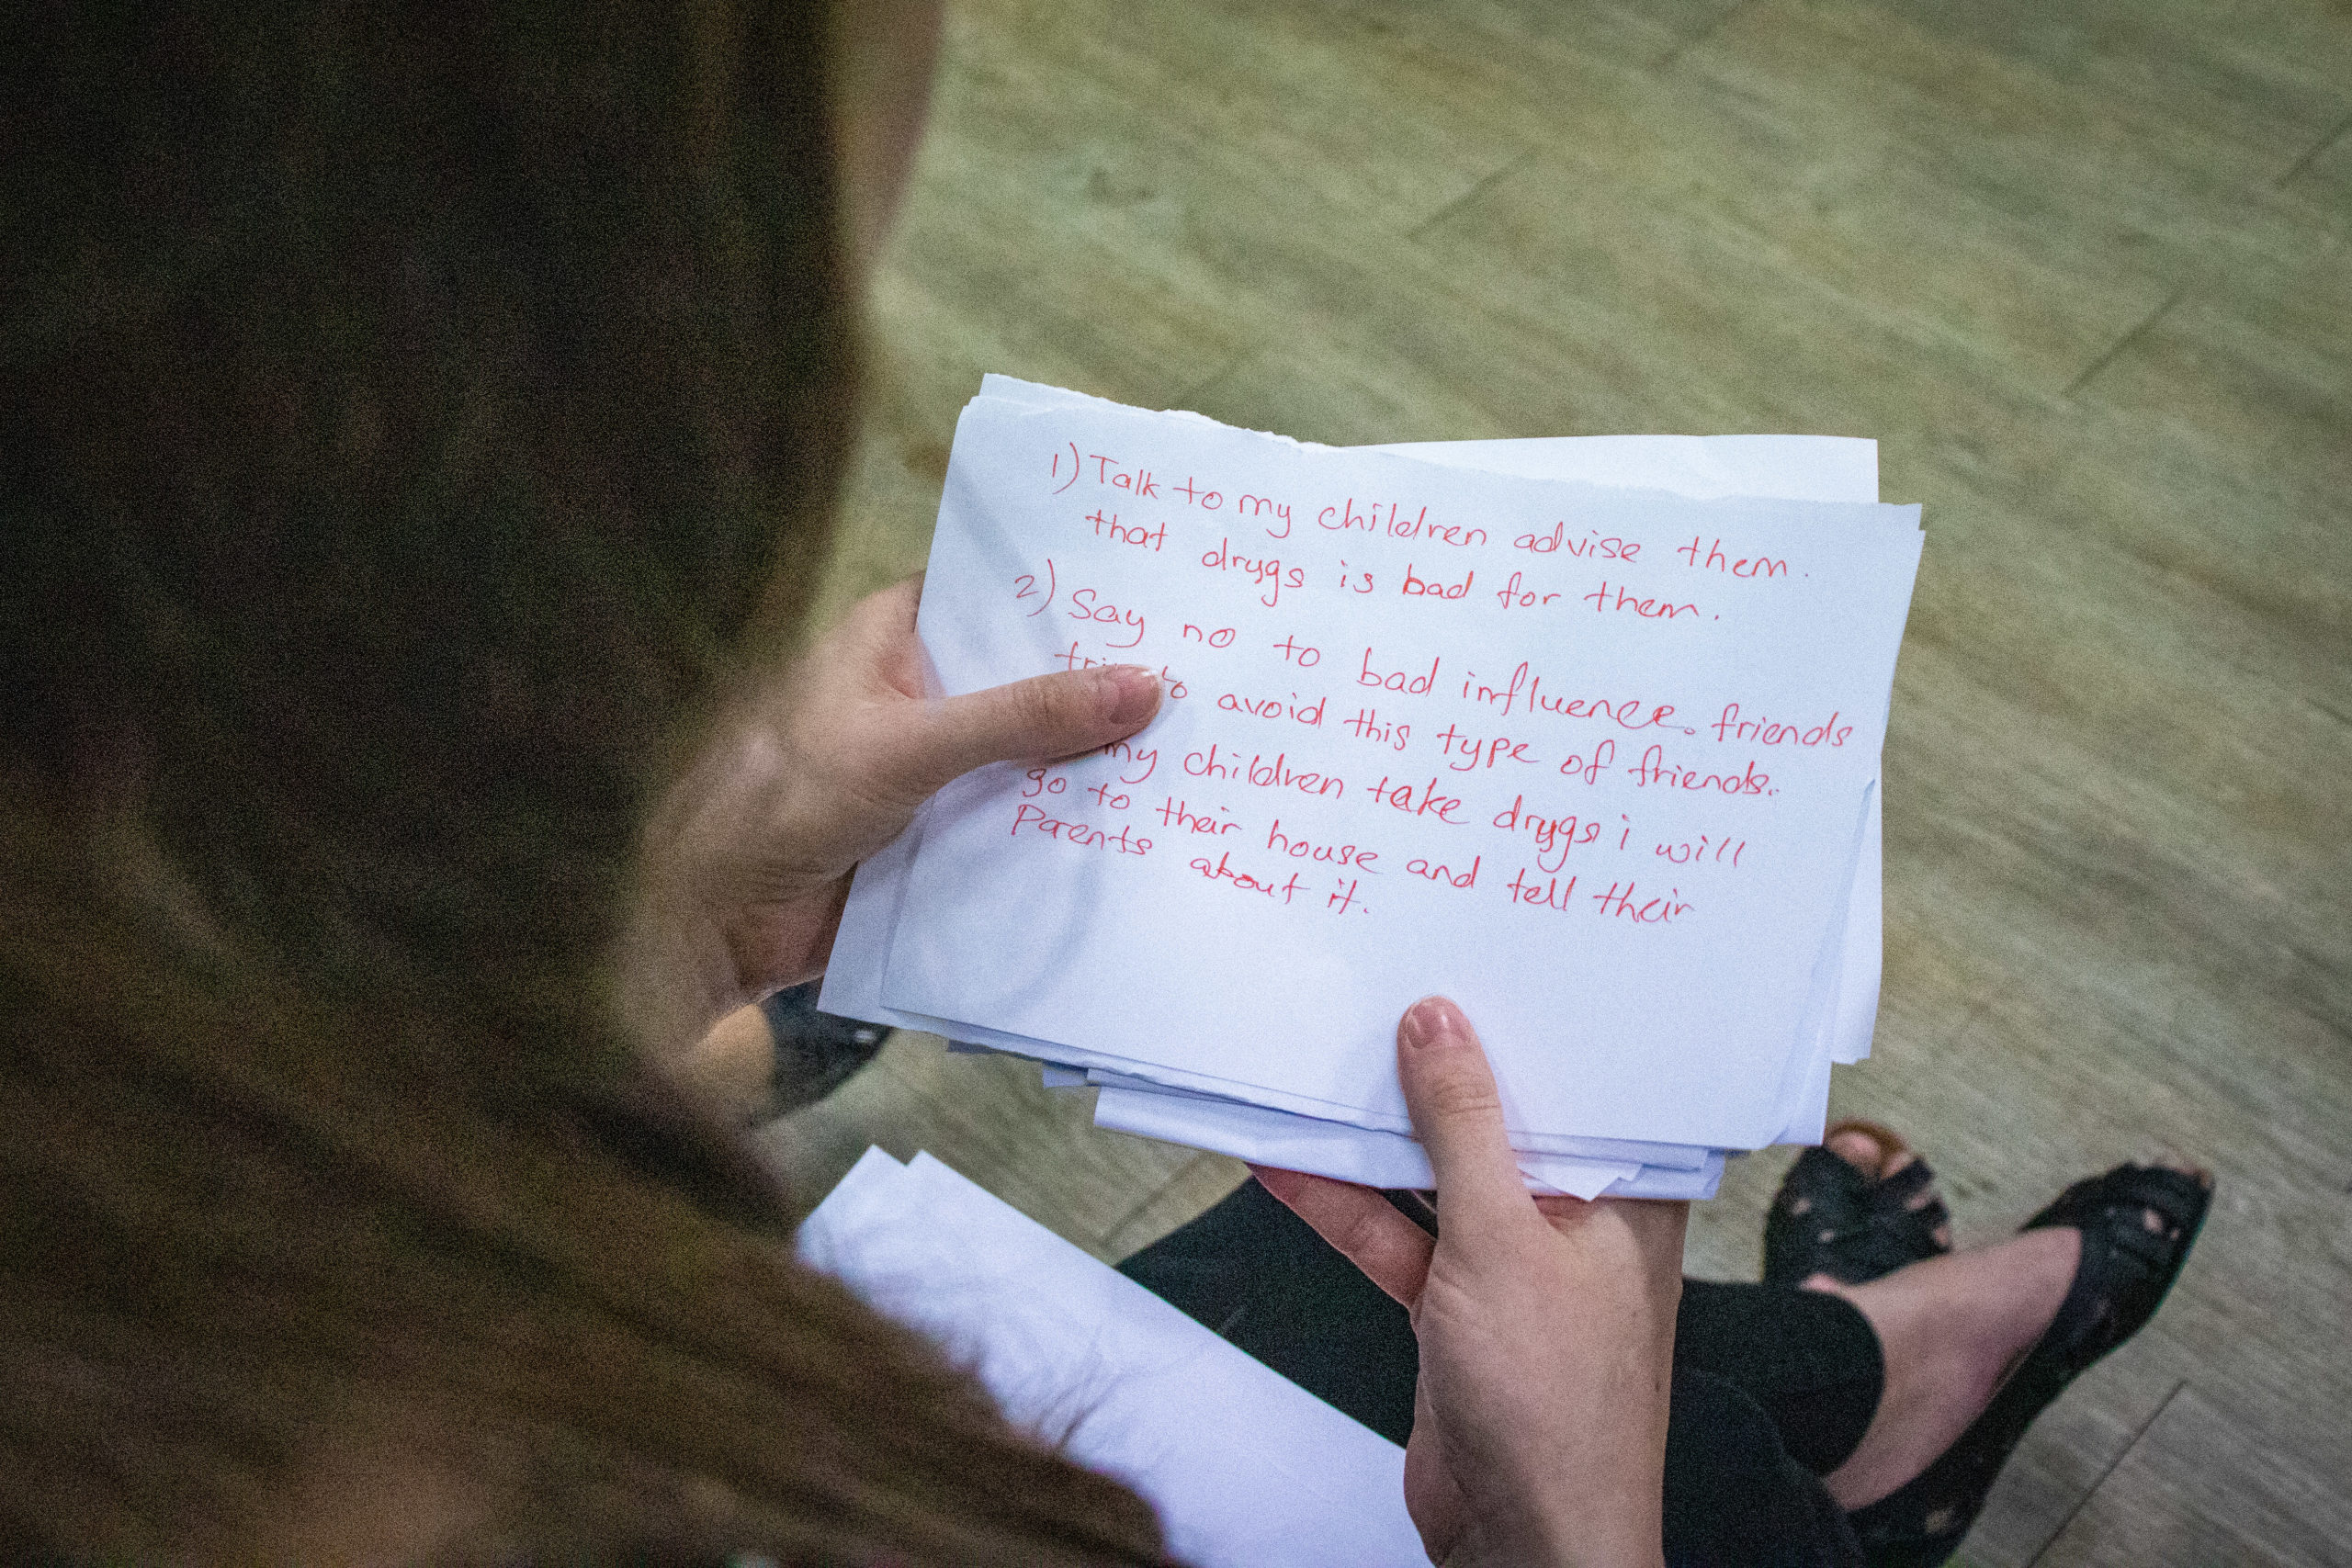 1) Talk to my children advise them.
that drugs is bad for them.
2) Say no to bad influence. friends
to avoid this type of friends.
my children take drugs i will
go to their house and tell their
Parents about it.